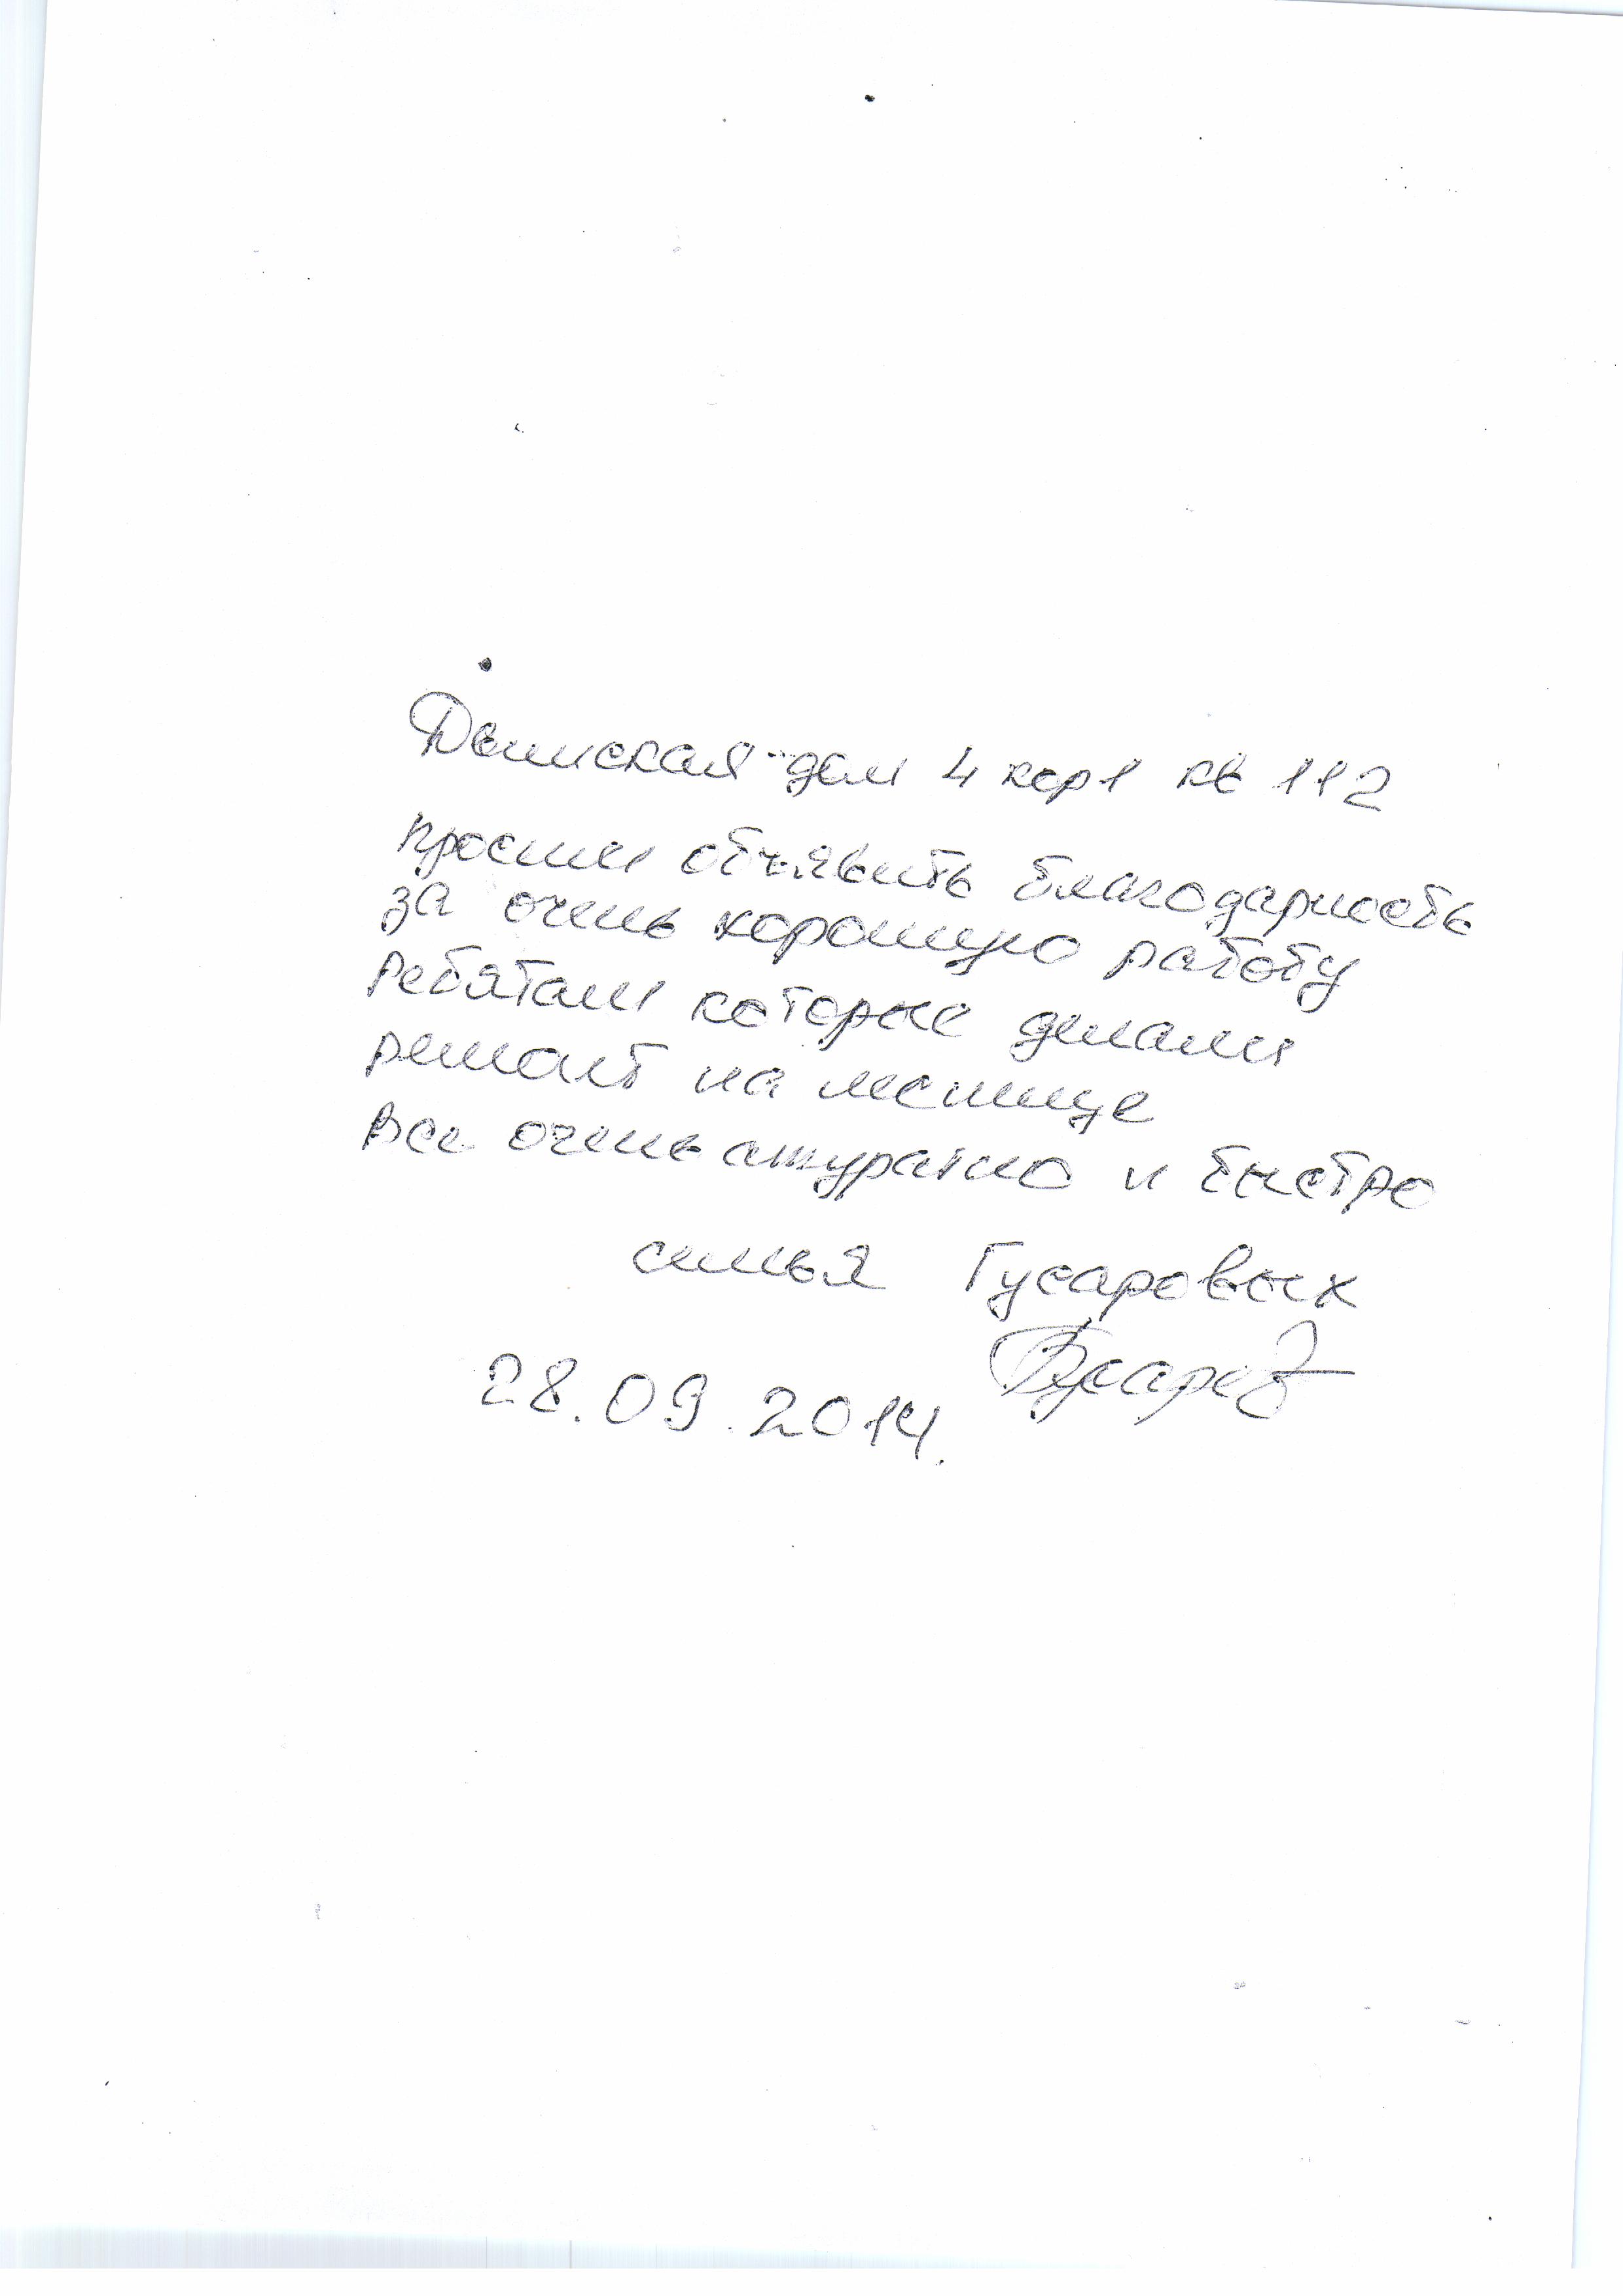 Двинская дом 4 кор 1 кв 112
просим объявить благодарность
за очень хорошую работу
ребятам которые делали
ремонт на лестнице
все очень аккуратно и быстро
семья Гусаровых
28.09.2014.